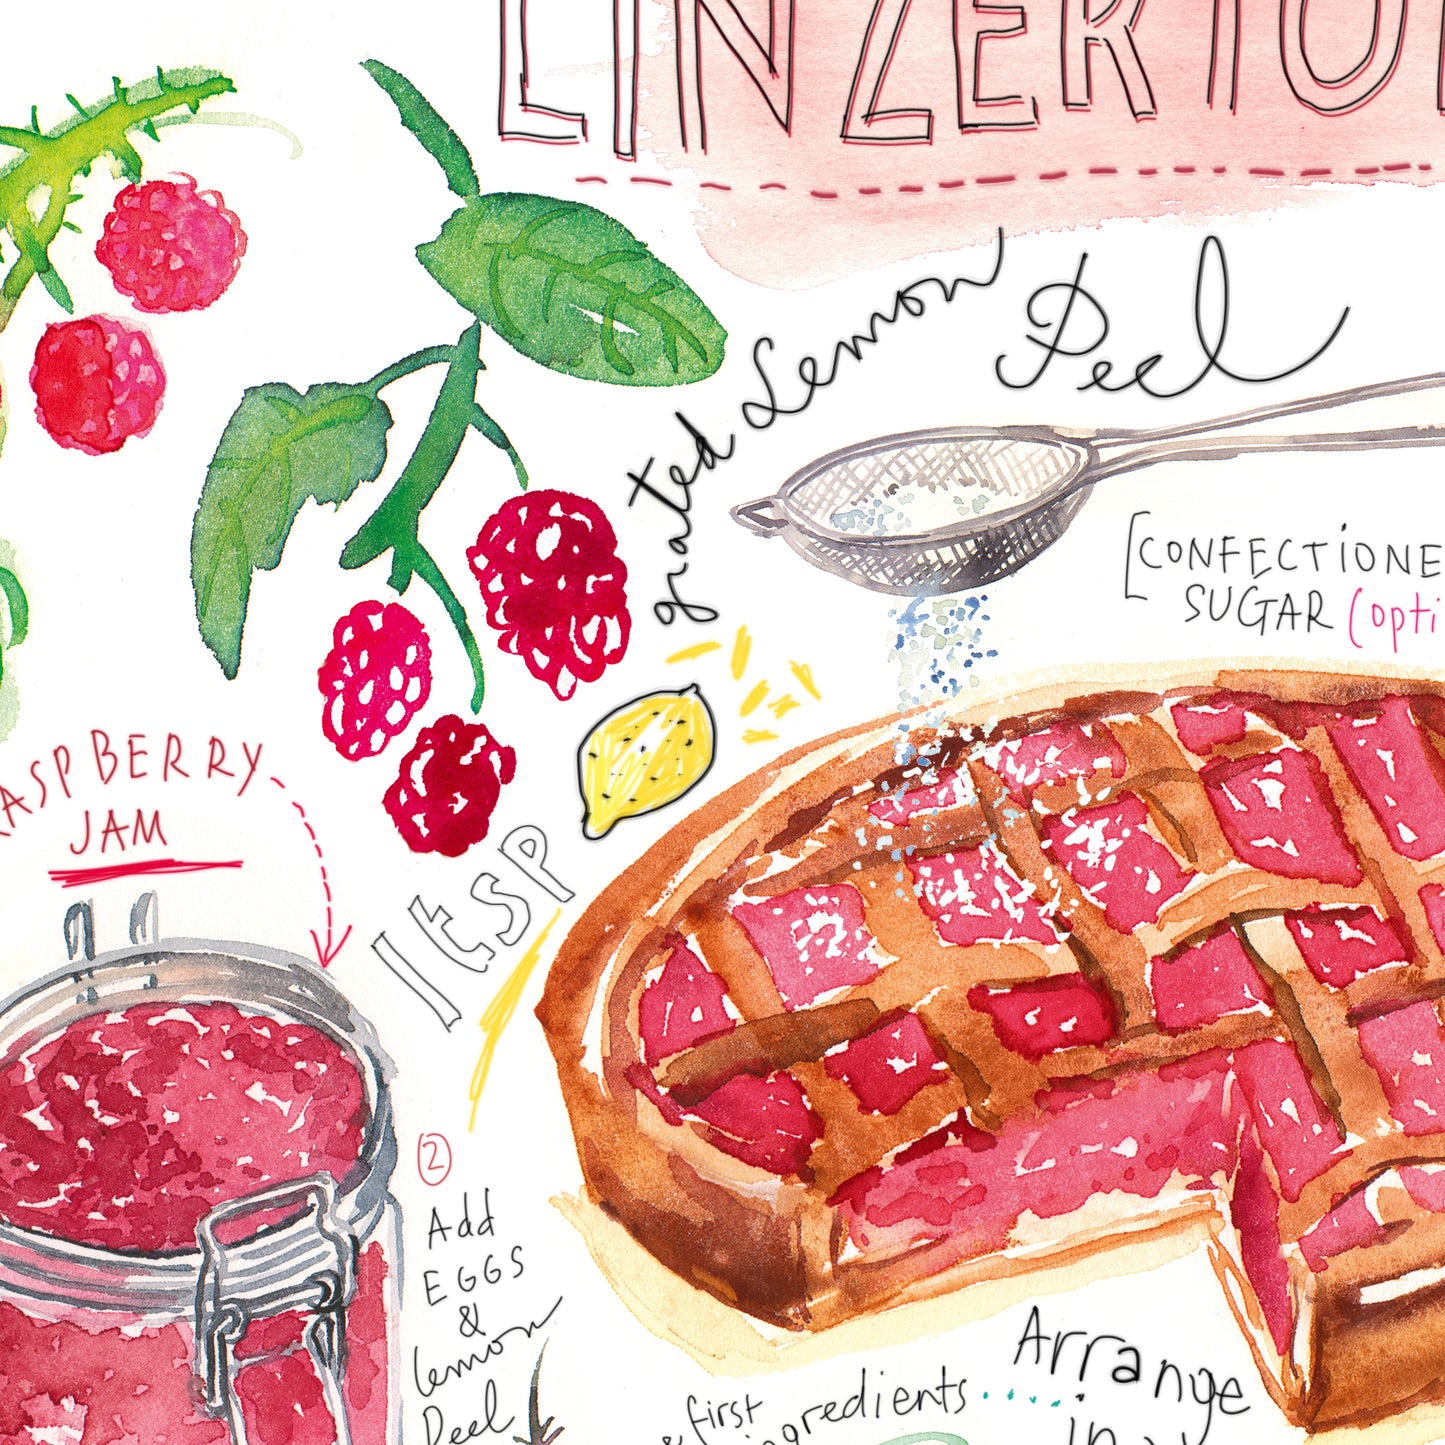 LINZERTO
grated Lemon Peel
[CONFECTIONE
SUGAR (opti
RASPBERRY
JAM
1 tsp
2
Add
EGGS
&
lemon
Peel
& first
ingredients
Arrange
in